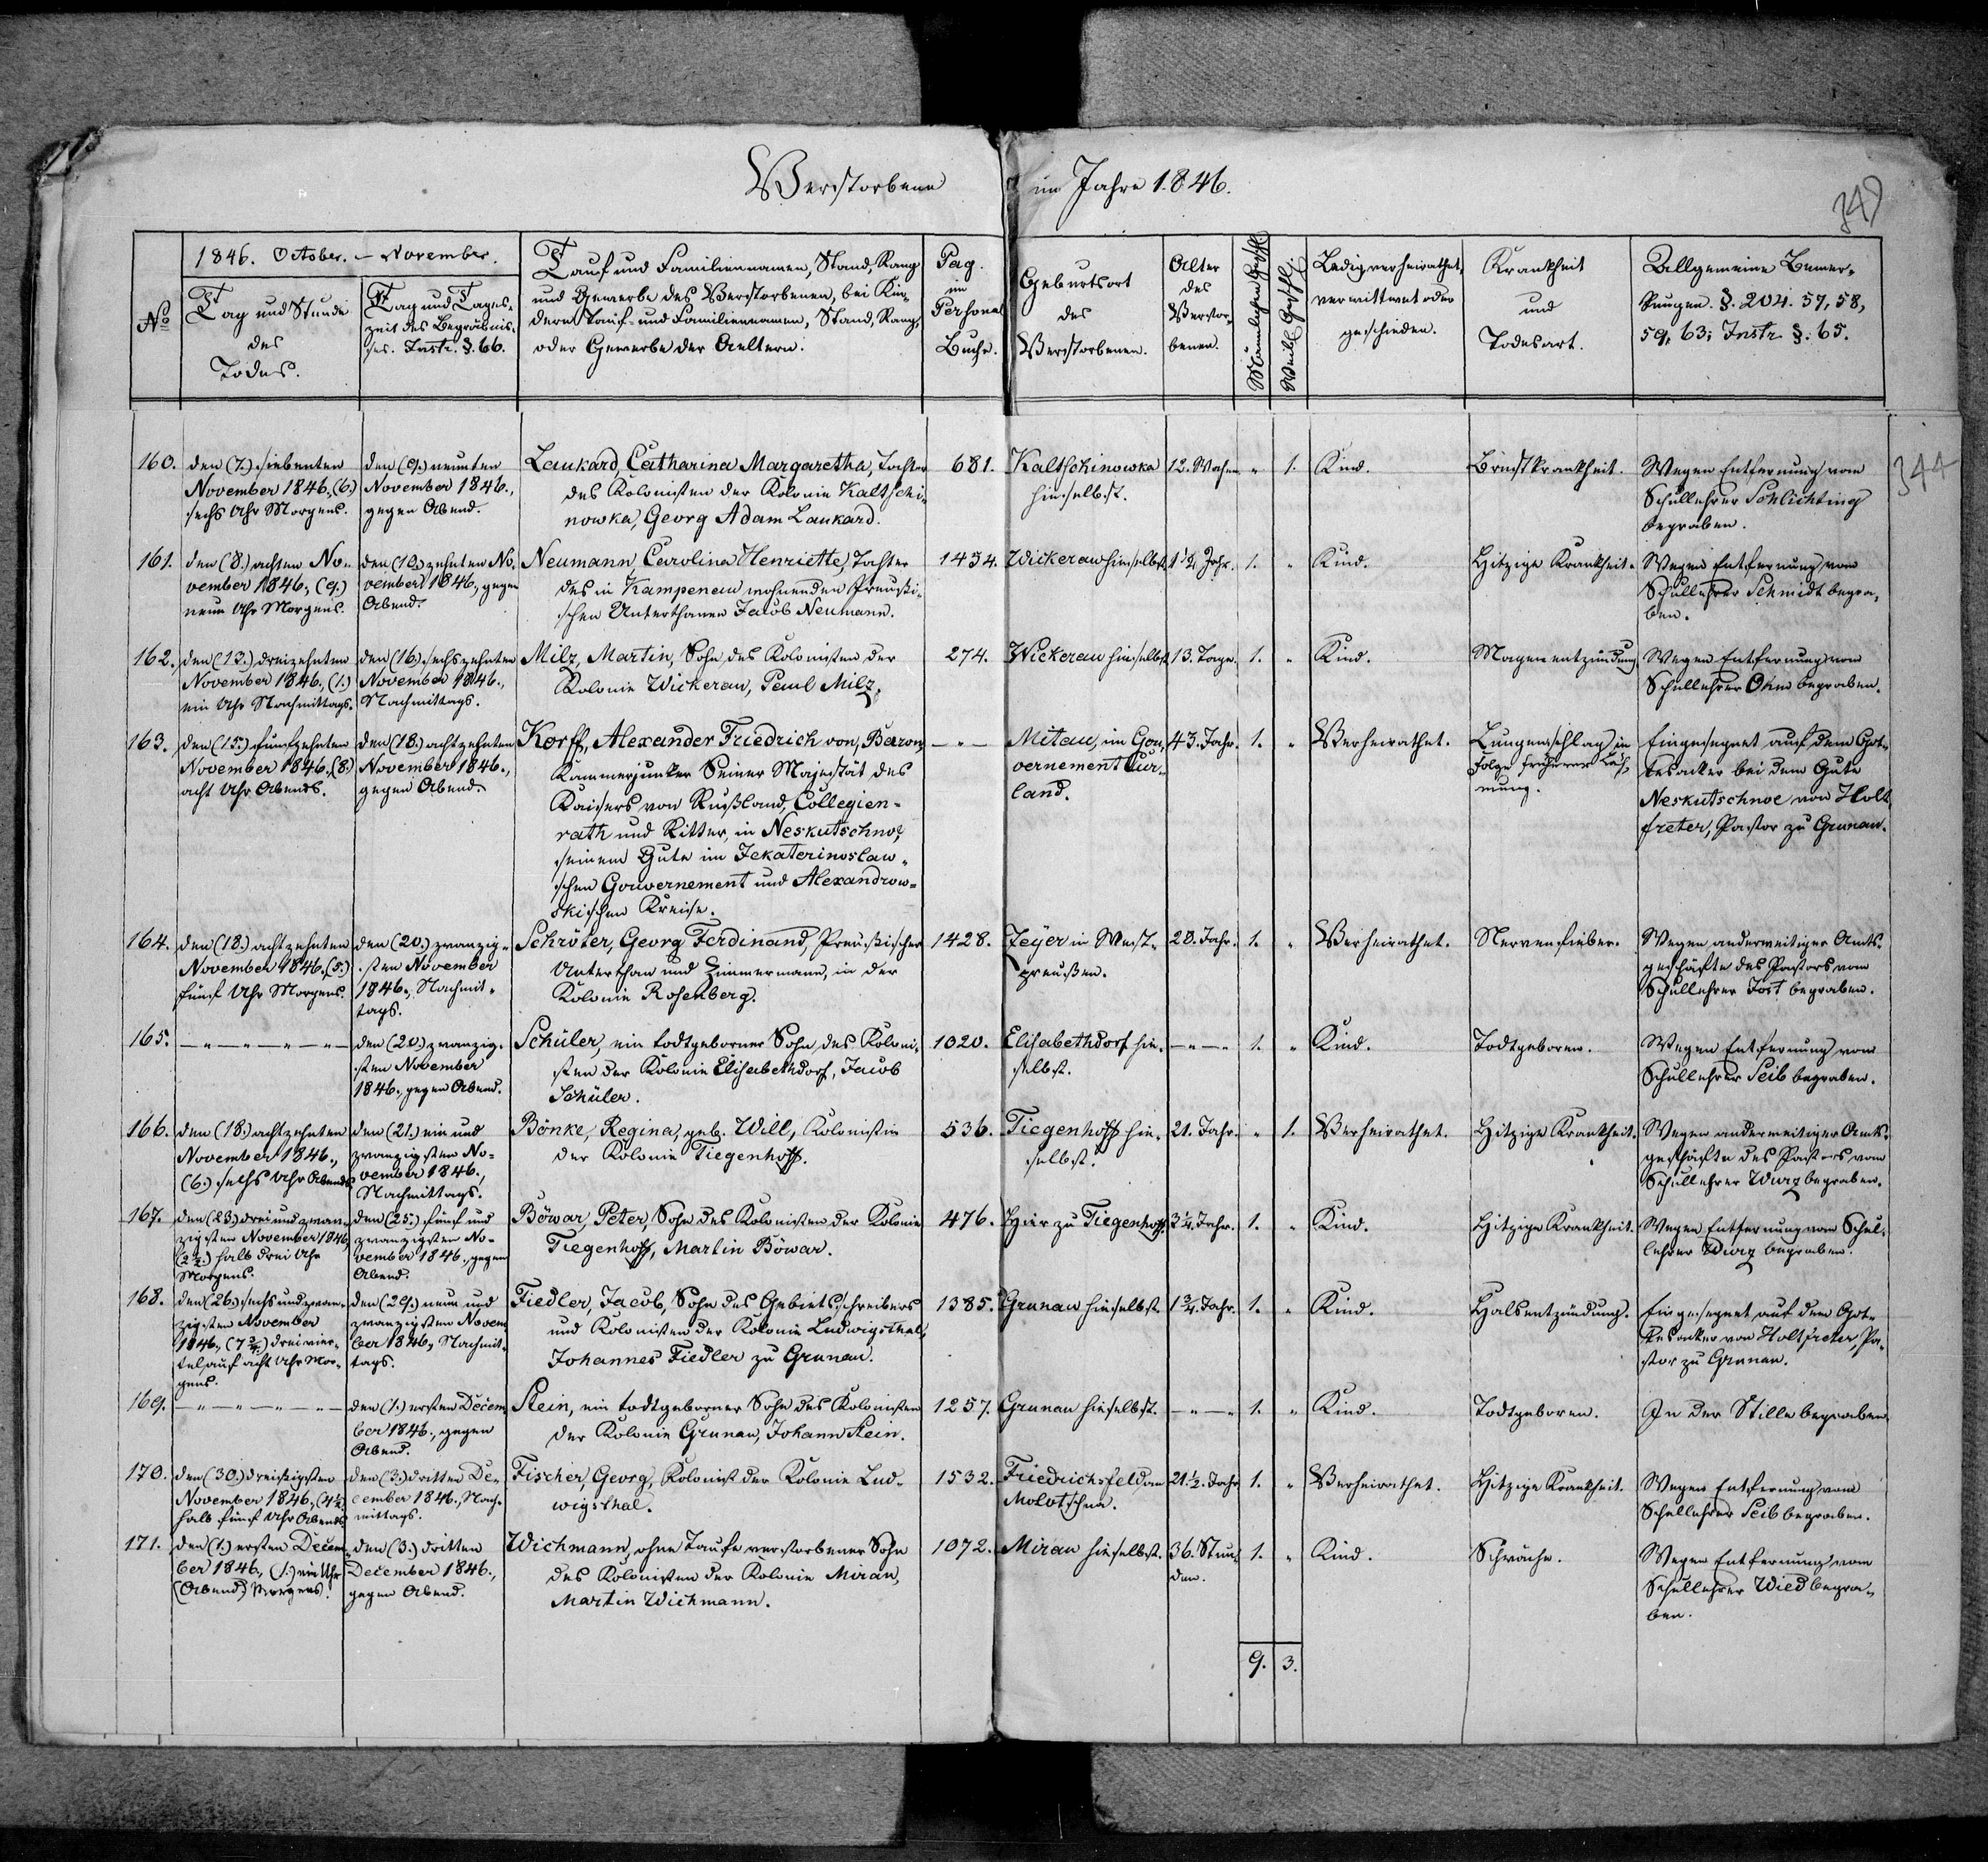 Verstorbene im Jahre 1846.
349
344
1846. October. – November.
No
Tag und Stunde
des
Todes.
Tag und Tages-
zeit des Begräbnis-
ses. Instr. §. 66.
Tauf und Familiennamen, Stand, Rang
und Gewerbe des Verstorbenen, bei Kin-
dern Tauf- und Familiennamen, Stand, Rang,
oder Gewerbe der Aeltern.
Pag.
im
Personal
Buche.
Geburtsort
des
Verstorbenen.
Alter
des
Verstor-
benen.
Männlichen Geschl.
Weibl. Geschl.
Ledig, verheirathet,
verwittwet oder
geschieden.
Krankheit
und
Todesart.
Allgemeine Bemer-
kungen. §. 204. 57, 58,
59, 63; Instr. §. 65.
160.
den (7.) siebenten
November 1846., (6.)
sechs Uhr Morgens.
den (9.) neunten
November 1846.,
gegen Abend.
Laukard, Catharina Margaretha, Tochter
des Kolonisten der Kolonie Kaltschi-
nowka, Georg Adam Laukard.
681.
Kaltschinowka
hieselbst.
12. Wochen
" 1.
Kind.
Brustkrankheit.
Wegen Entfernung vom
Schullehrer Schlichting
begraben.
161.
den (8.) achten No-
vember 1846., (9.)
neun Uhr Morgens.
den (10.) zehnten No-
vember 1846., gegen
Abend.
Neumann, Carolina Henriette, Tochter
des in Kampenau wohnenden Preußi-
schen Unterthanen Jacob Neumann.
1434.
Wickerau hieselbst
1 1/2 Jahr.
1. "
Kind.
Hitzige Krankheit.
Wegen Entfernung vom
Schullehrer Schmidt begra-
ben.
162.
den (13.) dreizehnten
November 1846., (1.)
ein Uhr Nachmittags.
den (16.) sechszehnten
November 1846.,
Nachmittags.
Milz, Martin, Sohn des Kolonisten der
Kolonie Wickerau, Paul Milz.
274.
Wickerau hieselbst
13. Tage.
1. "
Kind.
Magenentzündung
Wegen Entfernung vom
Schullehrer Ohm begraben.
163.
den (15.) funfzehnten
November 1846., (8.)
acht Uhr Abends.
den (18.) achtzehnten
November 1846.,
gegen Abend.
Korff, Alexander Friedrich von, Baron,
Kammerjunker Seiner Majestät des
Kaisers von Rußland, Collegien-
rath und Ritter, in Neskutschnoe,
seinem Gute im Jekaterinoslaw-
schen Gouvernement und Alexandrow-
skischen Kreise.
— " —
Mitau, im Gou-
vernement Cur-
land.
43. Jahr.
1. "
Verheirathet.
Lungenschlag in
Folge früherer Läh-
mung.
Eingesegnet auf dem Got-
tesacker bei dem Gute
Neskutschnoe von Holt-
freter, Pastor zu Grunau.
164.
den (18.) achtzehnten
November 1846., (5.)
fünf Uhr Morgens.
den (20.) zwanzig-
sten November
1846., Nachmit-
tags.
Schröter, Georg Ferdinand, Preußischer
Unterthan und Zimmermann, in der
Kolonie Rosenberg.
1428.
Zeyer in West-
preußen.
28. Jahr.
1. "
Verheirathet.
Nervenfieber.
Wegen anderweitiger Amts-
geschäfte des Pastors vom
Schullehrer Jost begraben.
165.
— " — " — " — " —
den (20.) zwanzig-
sten November
1846., gegen Abend.
Schüler, ein todtgeborner Sohn des Koloni-
sten der Kolonie Elisabethdorf, Jacob
Schüler.
1020.
Elisabethdorf hie-
selbst.
— " —
1. "
Kind.
Todtgeboren.
Wegen Entfernung vom
Schullehrer Seib begraben.
166.
den (18.) achtzehnten
November 1846.,
(6.) sechs Uhr Abends
den (21.) ein und
zwanzigsten No-
vember 1846.,
Nachmittags.
Bönke, Regina, geb. Will, Kolonistin
der Kolonie Tiegenhoff.
536.
Tiegenhoff hie-
selbst.
21. Jahr.
" 1.
Verheirathet.
Hitzige Krankheit.
Wegen anderweitiger Amts-
geschäfte des Pastors vom
Schullehrer Wurz begraben.
167.
den (23.) drei und zwan-
zigsten November 1846,
(2 1/2.) halb drei Uhr
Morgens.
den (25.) fünf und
zwanzigsten No-
vember 1846., gegen
Abend.
Böwar, Peter, Sohn des Kolonisten der Kolonie
Tiegenhoff, Martin Böwar.
476.
Hier zu Tiegenhoff.
3 1/4. Jahr.
1. "
Kind.
Hitzige Krankheit.
Wegen Entfernung vom Schul-
lehrer Wurz begraben.
168.
den (26.) sechs und zwan-
zigsten November
1846., (7 3/4.) drei vier-
tel auf acht Uhr Mor-
gens.
den (29.) neun und
zwanzigsten Novem-
ber 1846., Nachmit-
tags.
Fiedler, Jacob, Sohn des Gebietsschreibers
und Kolonisten der Kolonie Ludwigsthal,
Johannes Fiedler zu Grunau.
1385.
Grunau hieselbst.
1 3/4. Jahr.
1. "
Kind.
Halsentzündung.
Eingesegnet auf dem Got-
tesacker von Holtfreter, Pa-
stor zu Grunau.
169.
— " — " — " — " —
den (1.) ersten Decem-
ber 1846., gegen
Abend.
Stein, ein todtgeborner Sohn des Kolonisten
der Kolonie Grunau, Johann Stein.
1257.
Grunau hieselbst.
— " —
1. "
Kind.
Todtgeboren.
In der Stille begraben.
170.
den (30.) dreißigsten
November 1846., (4 1/2.)
halb fünf Uhr Abends
den (3.) dritten De-
cember 1846., Nach-
mittags.
Fischer, Georg, Kolonist der Kolonie Lud-
wigsthal.
1532.
Friedrichsfeld an
Molotschna.
21 1/2. Jahr
1. "
Verheirathet.
Hitzige Krankheit.
Wegen Entfernung vom
Schullehrer Seib begraben.
171.
den (1.) ersten Decem-
ber 1846., (1.) ein Uhr
(Abend) Morgens.
den (3.) dritten
December 1846.,
gegen Abend.
Wichmann, ohne Taufe verstorbener Sohn
des Kolonisten der Kolonie Mirau,
Martin Wichmann.
1072.
Mirau hieselbst.
36. Stun-
den.
1. "
Kind.
Schwäche.
Wegen Entfernung vom
Schullehrer Wied begra-
ben.
9. 3.